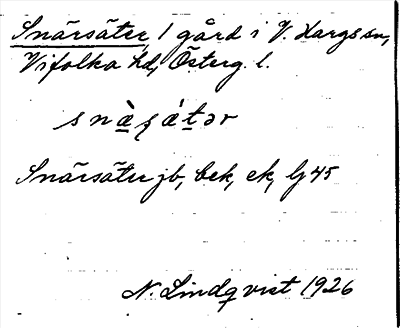 Snärsäter, 1 gård i V. Hargs sn,
Vifolka hd, Österg. l.
snä̀ṣá̈tər
Snärsäter jb, bek, ek, lj 45
N. Lindqvist 1926